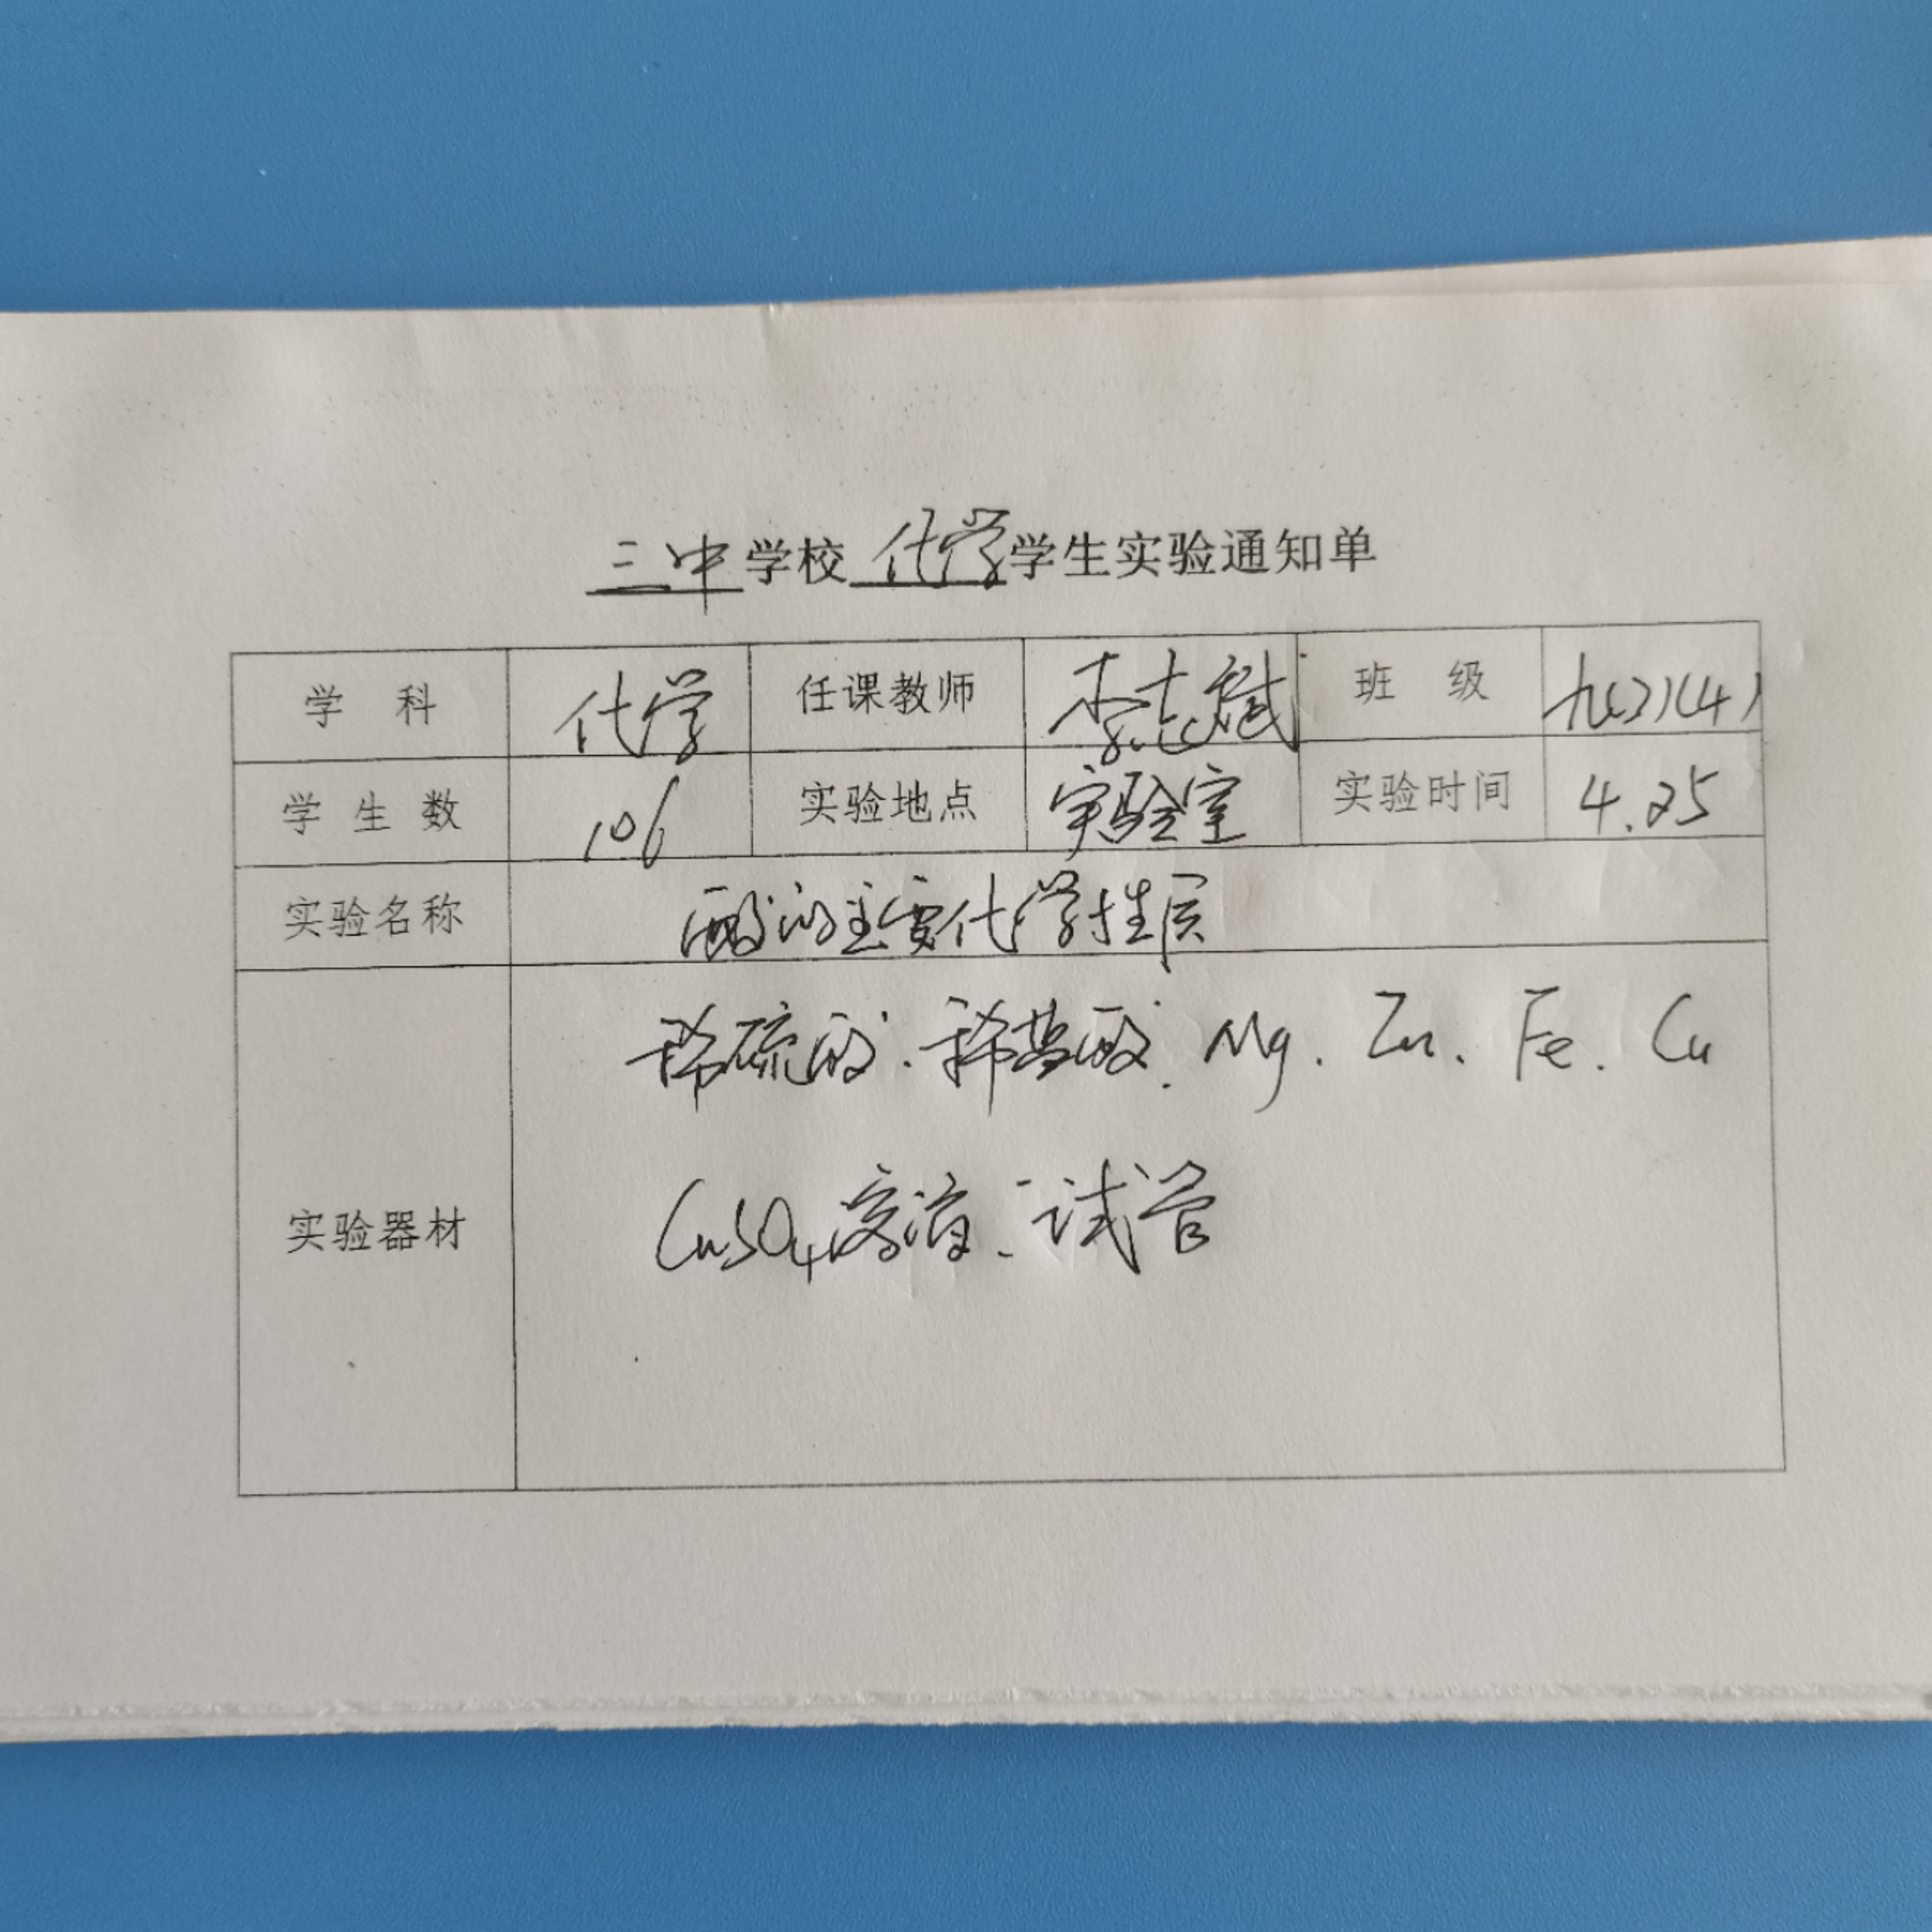 三中学校化学学生实验通知单
学 科 化学 任课教师 李志斌 班 级 九(3)(4)
学 生 数 106 实验地点 实验室 实验时间 4.25
实验名称 酸的主要化学性质
稀硫酸.稀盐酸.Mg.Zn.Fe.Cu
实验器材 CuSO4溶液.试管